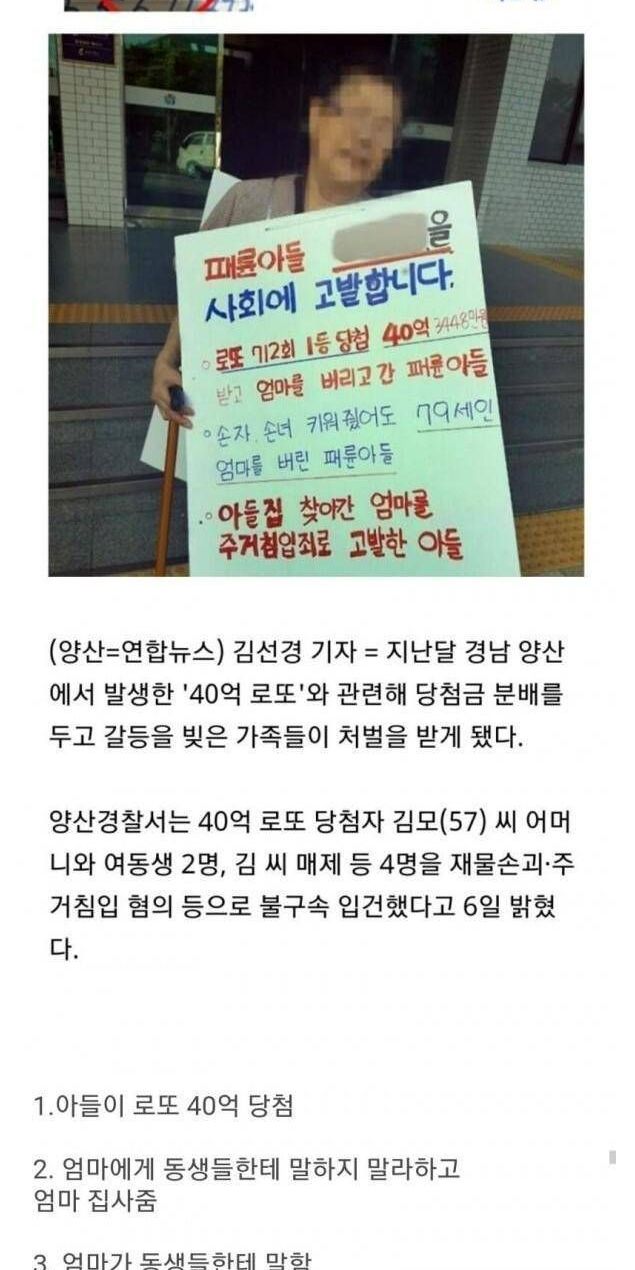 패륜아들 을
사회에 고발합니다.
○ 로또 712회 1등당첨 40억 3448만원
받고 엄마를 버리고 간 패륜아들
○ 손자. 손녀 키워줬어도 79세인
엄마를 버린 패륜아들
○ 아들집 찾아간 엄마를
주거침입죄로 고발한 아들
(양산=연합뉴스) 김선경 기자 = 지난달 경남 양산
에서 발생한 '40억 로또'와 관련해 당첨금 분배를
두고 갈등을 빚은 가족들이 처벌을 받게 됐다.
양산경찰서는 40억 로또 당첨자 김모(57) 씨 어머
니와 여동생 2명, 김 씨 매제 등 4명을 재물손괴·주
거침입 혐의 등으로 불구속 입건했다고 6일 밝혔
다.
1.아들이 로또 40억 당첨
2. 엄마에게 동생들한테 말하지 말라하고
엄마 집사줌
3. 엄마가 동생들한테 말함